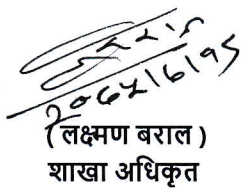 २०६५।६।१५
( लक्ष्मण बराल )
शाखा अधिकृत